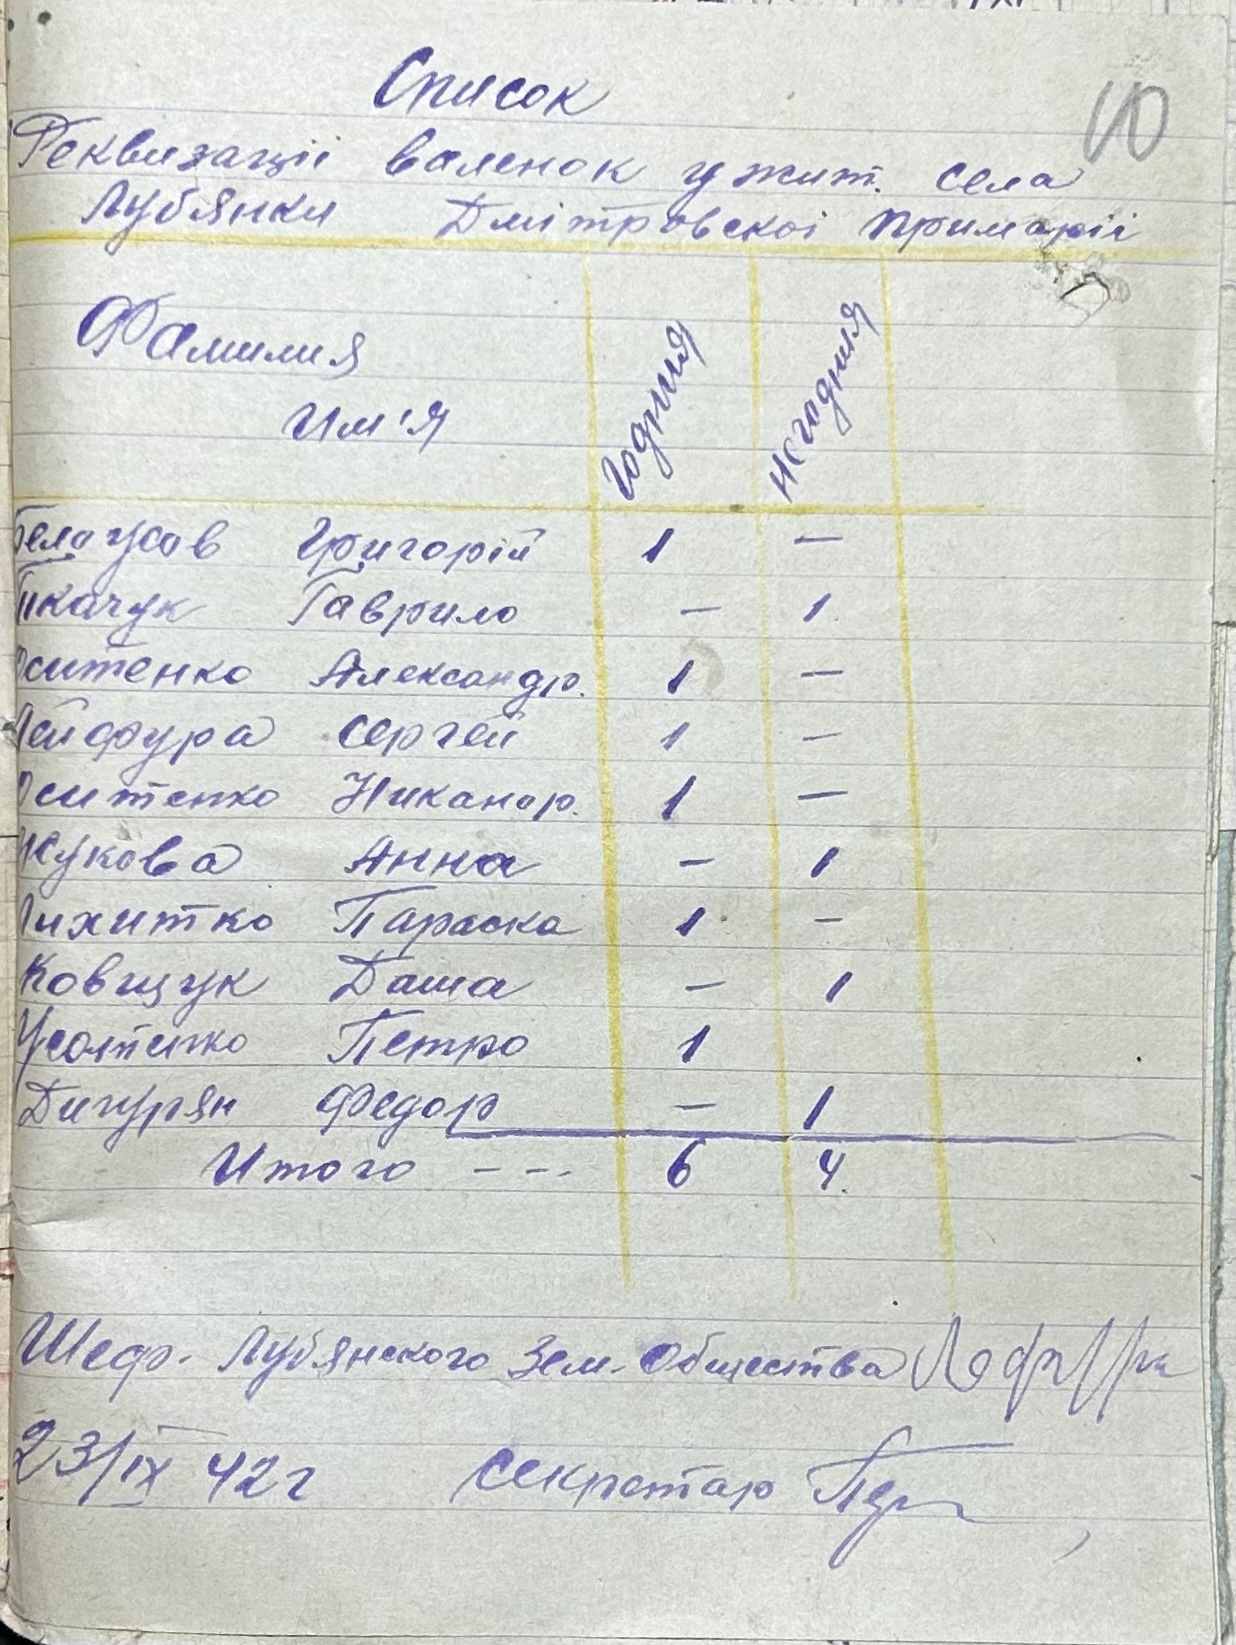 Список
10
Реквизаціі валенок у жит. села
Лубянки Дмітровскоі примаріі
Фамилия
Им'я
годния
негодния
Белоусов Григорій 1 —
Ткачук Гаврило — 1
Оситенко Александр. 1 —
Лейфура Сергей 1 —
Оситенко Никанор. 1 —
Жукова Анна — 1
Лихитко Параска 1 —
Ковщук Даша — 1
Петро 1
Дигурян Федор — 1
Итого --- 6 4.
Шеф. Лубянского Зем. Общества
23/IX 42 г секретар